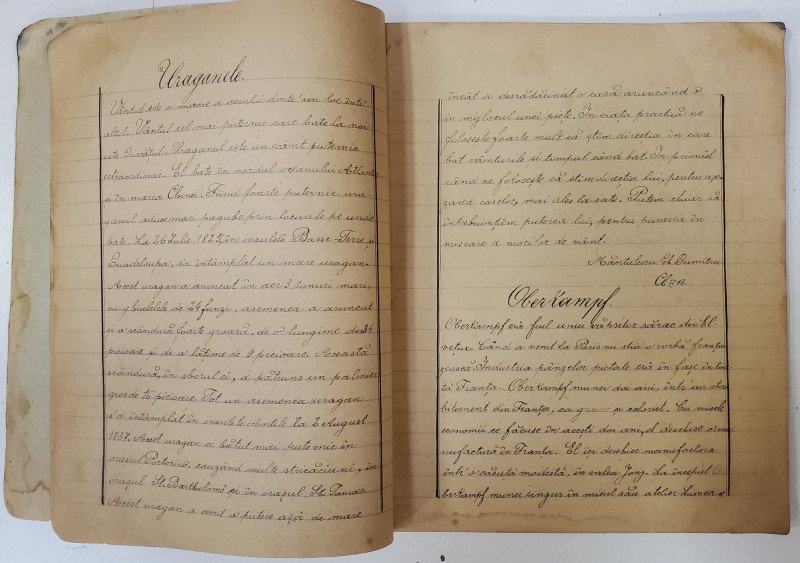 Uraganele.
Vântul este o miscare a aerului dintr'un loc într'
altul. Vântul cel mai puternic care bate la noi
este Crivățul. Uraganul este un vânt puternic
extraordinar. El bate în nordul oceanului Atlantic
și în marea Chinei. Fiind foarte puternic ura-
ganul aduce mari pagube prin locurile pe unde
bate. La 26 Iulie 1825, în insulele Basse-Terre și
Guadelupa, s'a întâmplat un mare uragan.
Acest uragan a aruncat în aer 3 tunuri mari,
cu ghiulele de 24 funzi, asemenea a aruncat
și o scândură foarte groasă, de o lungime de 34
picioare și de o lățime de 9 picioare. Această
scândură, în sborul ei, a pătruns un palmier
gros de 16 picioare. Tot un asemenea uragan
s'a întâmplat în insulele Antile la 2 August
1837. Acest uragan a bătut mai puternic în
orasul Portorico, cauzând multe stricăciuni, în
orasul St. Bartholomé și în orasul St. Tomas.
Acest uragan a avut o putere așă de mare
încât a desrădăcinat o casă aruncând o
în mylocul unei piețe. În viața practică ne
folosește foarte mult să știm directia în care
bat vânturile și timpul când bat. În primul
rând ne folosește să stim direcția lui, pentru așe-
zarea caselor, mai ales la sate. Putem chiar să
întrebuințăm puterea lui, pentru punerea în
miscare a morilor de vânt.
Măntulescu Gh. Dumitru
Oberkampf.
Oberkampf erà fiul unui văpsitor sărac din El-
veția. Când a venit la Paris nu stia o vorbă franțu-
zească. Industria pânzelor pictate erà în fașe în toa-
tă Franța. Oberkampf munci doi ani, într'un sta-
biliment din Franța, ca și colorist. Cu micele
economii ce făcuse în acești doi ani, el deschise o ma-
nufactură în Franța. El își deschise manufactura
într'o căsuță modestă, în valea Jouy. La început O-
berkampf munci singur în micul său atelier